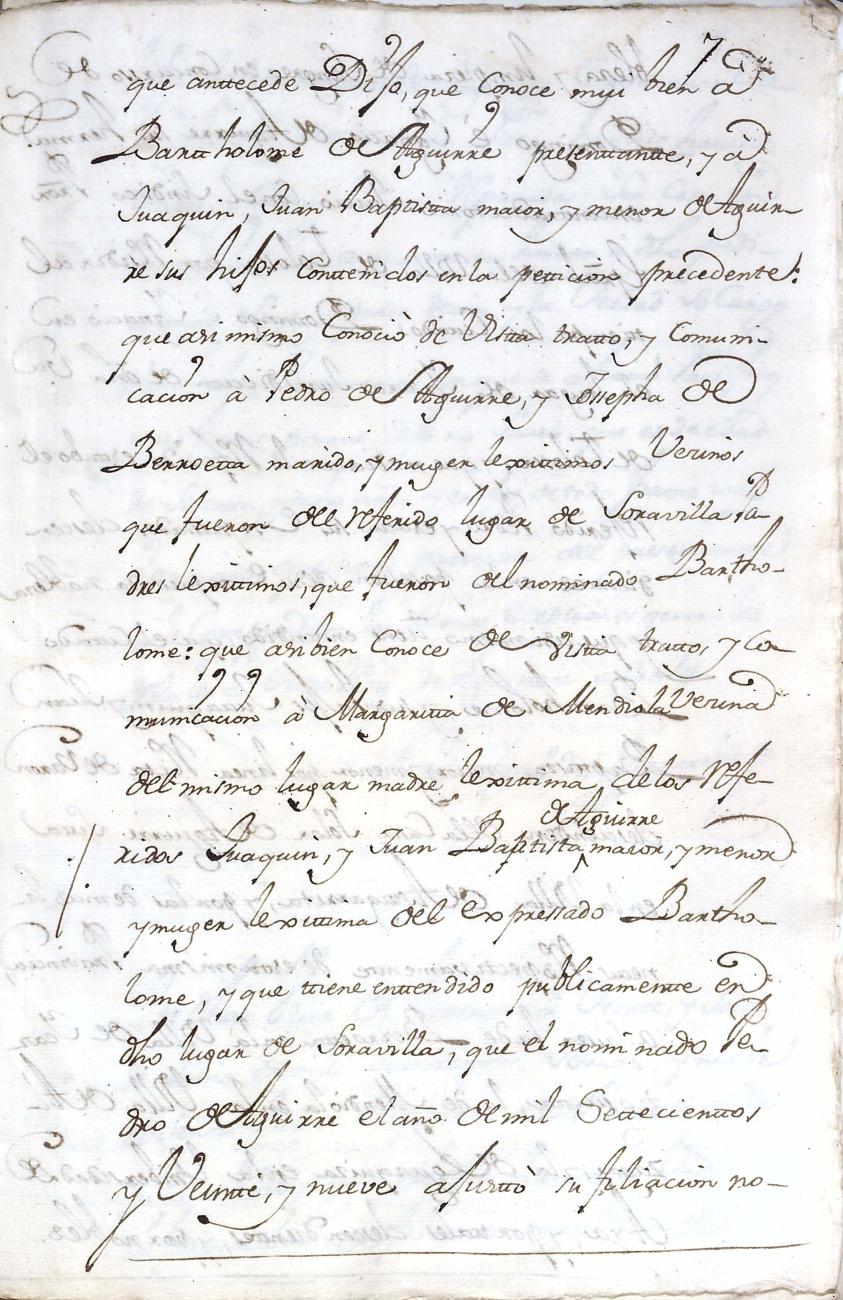 7
que anttecede Dijo, que Conoce mui bien à
Barttholome de Aguirre presenttantte, y à
Juaquin, Juan Baptista maior, y menor de Aguir-
re sus hijos Conttenidos en la pettición precedente:
que asi mismo Conociò de Vista tratto, y Comuni-
cación à Pedro de Aguirre, y Josepha de
Berroetta marido, y muger lexittimos Vecinos
que fueron del referido lugar de Soravilla Pa-
dres lexittimos, que fueron del nominado Bartho-
lome: que asi bien Conoce de vista tratto, y Co-
municación à Margaritta de Mendiola Vecina
del mismo lugar madre lexittima de los refe-
de Aguirre
ridos Juaquin, y Juan Baptista ^ maior, y menor
y muger lexittima del expressado Bartho-
lome, y que ttiene enttendido publicamentte en
dho lugar de Soravilla, que el nominado Pe-
dro de Aguirre el año de mil Settecienttos
y Veintte, y nueve asurttò su filiación no-